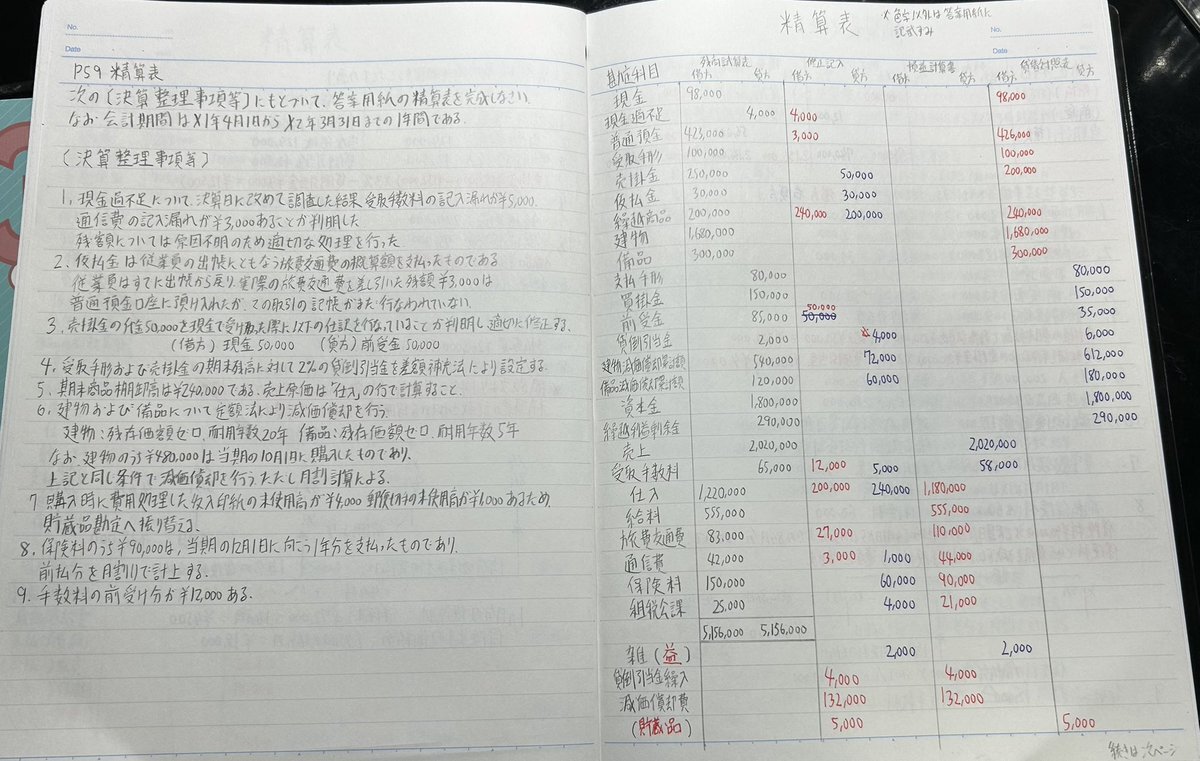 No.
Date
P59 精算表
次の〔決算整理事項等〕にもとづいて、答案用紙の精算表を完成しなさい。
なお会計期間は×1年4月1日から×2年3月31日までの1年間である。
〔決算整理事項等〕
1, 現金過不足について決算日に改めて調査した結果 受取手数料の記入漏れが¥5,000.
通信費の記入漏れが¥3,000あることが判明した
残額については原因不明のため適切な処理を行った
2. 仮払金は従業員の出張にともなう旅費交通費の概算額を支払ったものである
従業員はすでに出張から戻り実際の旅費交通費を差し引いた残額¥3,000は
普通預金口座に預け入れたが、この取引の記帳がまだ行なわれていない.
3. 売掛金の代金50,000を現金で受け取った際に以下の仕訳を行なっていることが判明し適切に修正する.
(借方) 現金 50,000 (貸方) 前受金 50,000
4. 受取手形および売掛金の期末残高に対して2%の貸倒引当金を差額補充法により設定する.
5. 期末商品棚卸高は¥240,000である. 売上原価は「仕入」の行で計算すること.
6. 建物および備品について定額法により減価償却を行う.
建物:残存価額ゼロ.耐用年数20年 備品:残存価額ゼロ.耐用年数5年
なお建物のうち¥480,000は当期の10月1日に購入したものであり.
上記と同じ条件で減価償却を行う.ただし月割計算による.
7 購入時に費用処理した収入印紙の未使用高が¥4,000 郵便切手の未使用高が¥1,000あるため.
貯蔵品勘定へ振り替える.
8. 保険料のうち¥90,000は,当期の12月1日に向こう1年分を支払ったものであり.
前払分を月割りで計上する.
9. 手数料の前受け分が¥12,000ある.
精算表
※色字以外は答案用紙に
記載ずみ
No.
Date
勘定科目 残高試算表 修正記入 損益計算書 貸借対照表
借方 貸方 借方 貸方 借方 貸方 借方 貸方
現金 98,000 98,000
現金過不足 4,000 4,000
普通預金 423,000 3,000 426,000
受取手形 100,000 100,000
売掛金 250,000 50,000 200,000
仮払金 30,000 30,000
繰越商品 200,000 240,000 200,000 240,000
建物 1,680,000 1,680,000
備品 300,000 300,000
支払手形 80,000 80,000
買掛金 150,000 150,000
前受金 85,000 50,000 50,000 35,000
貸倒引当金 2,000 ※4,000 6,000
建物減価償却累計額 540,000 72,000 612,000
備品減価償却累計額 120,000 60,000 180,000
資本金 1,800,000 1,800,000
繰越利益剰余金 290,000 290,000
売上 2,020,000 2,020,000
受取手数料 65,000 12,000 5,000 58,000
仕入 1,220,000 200,000 240,000 1,180,000
給料 555,000 555,000
旅費交通費 83,000 27,000 110,000
通信費 42,000 3,000 1,000 44,000
保険料 150,000 60,000 90,000
租税公課 25,000 4,000 21,000
5,156,000 5,156,000
雑(益) 2,000 2,000
貸倒引当金繰入 4,000 4,000
減価償却費 132,000 132,000
(貯蔵品) 5,000 5,000
続きは次ページ